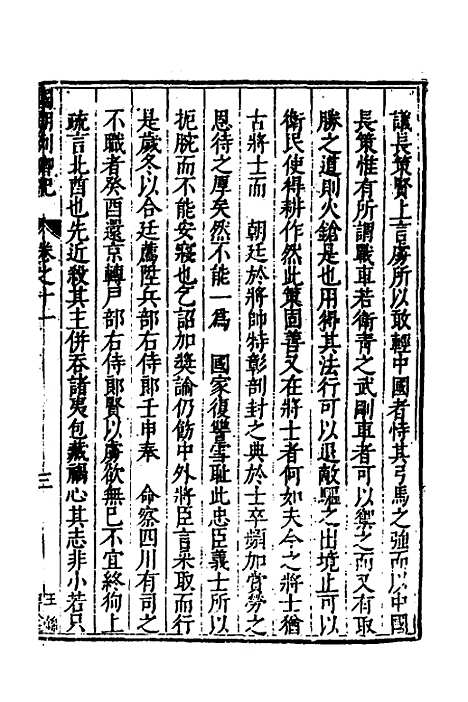 議長策賢上言虜所以敢輕中國者恃其弓馬之強而以中國
長策惟有所謂戰車若衛青之武剛車者可以禦之而又有取
勝之道則火鎗是也用得其法行可以退敵驅之出境止可以
衛民使得耕作然此策固善又在將士者何如夫今之將士猶
古將士而 朝廷於將帥特彰剖封之典於士卒頻加賞勞之
恩待之厚矣然不能一爲 國家復讐雪耻此忠臣義士所以
扼腕而不能安寢也乞詔加奬諭仍飭中外將臣言采取而行
是歲冬以合廷薦陞兵部右侍郎壬申奉 命察四川有司之
不職者癸酉還京轉戶部右侍郎賢以虜欲無已不宜終狥上
疏言北酋也先近殺其主併吞諸夷包藏禍心其志非小若只
國朝列卿紀 卷之十一 三